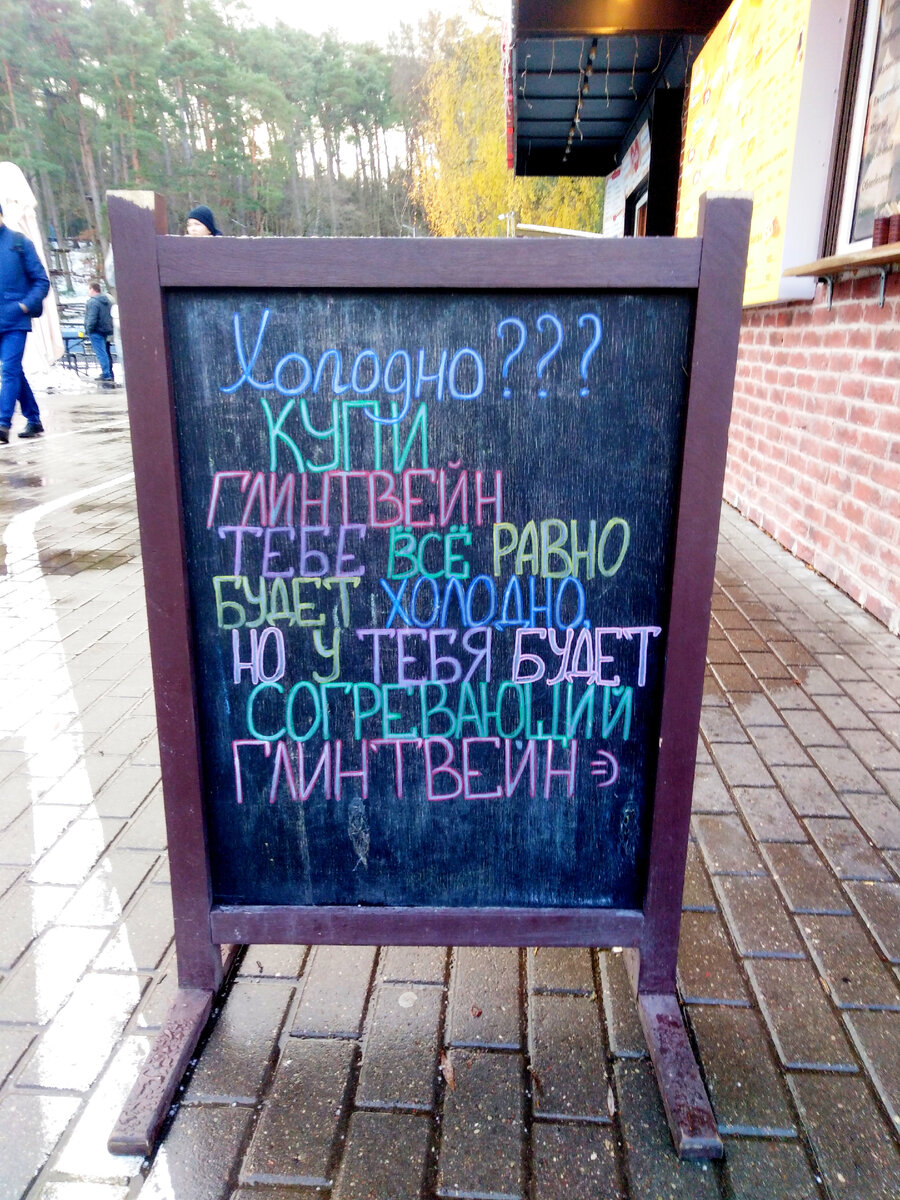 Холодно???
КУПИ
ГЛИНТВЕЙН
ТЕБЕ ВСЁ РАВНО
БУДЕТ ХОЛОДНО,
НО У ТЕБЯ БУДЕТ
СОГРЕВАЮЩИЙ
ГЛИНТВЕЙН =)